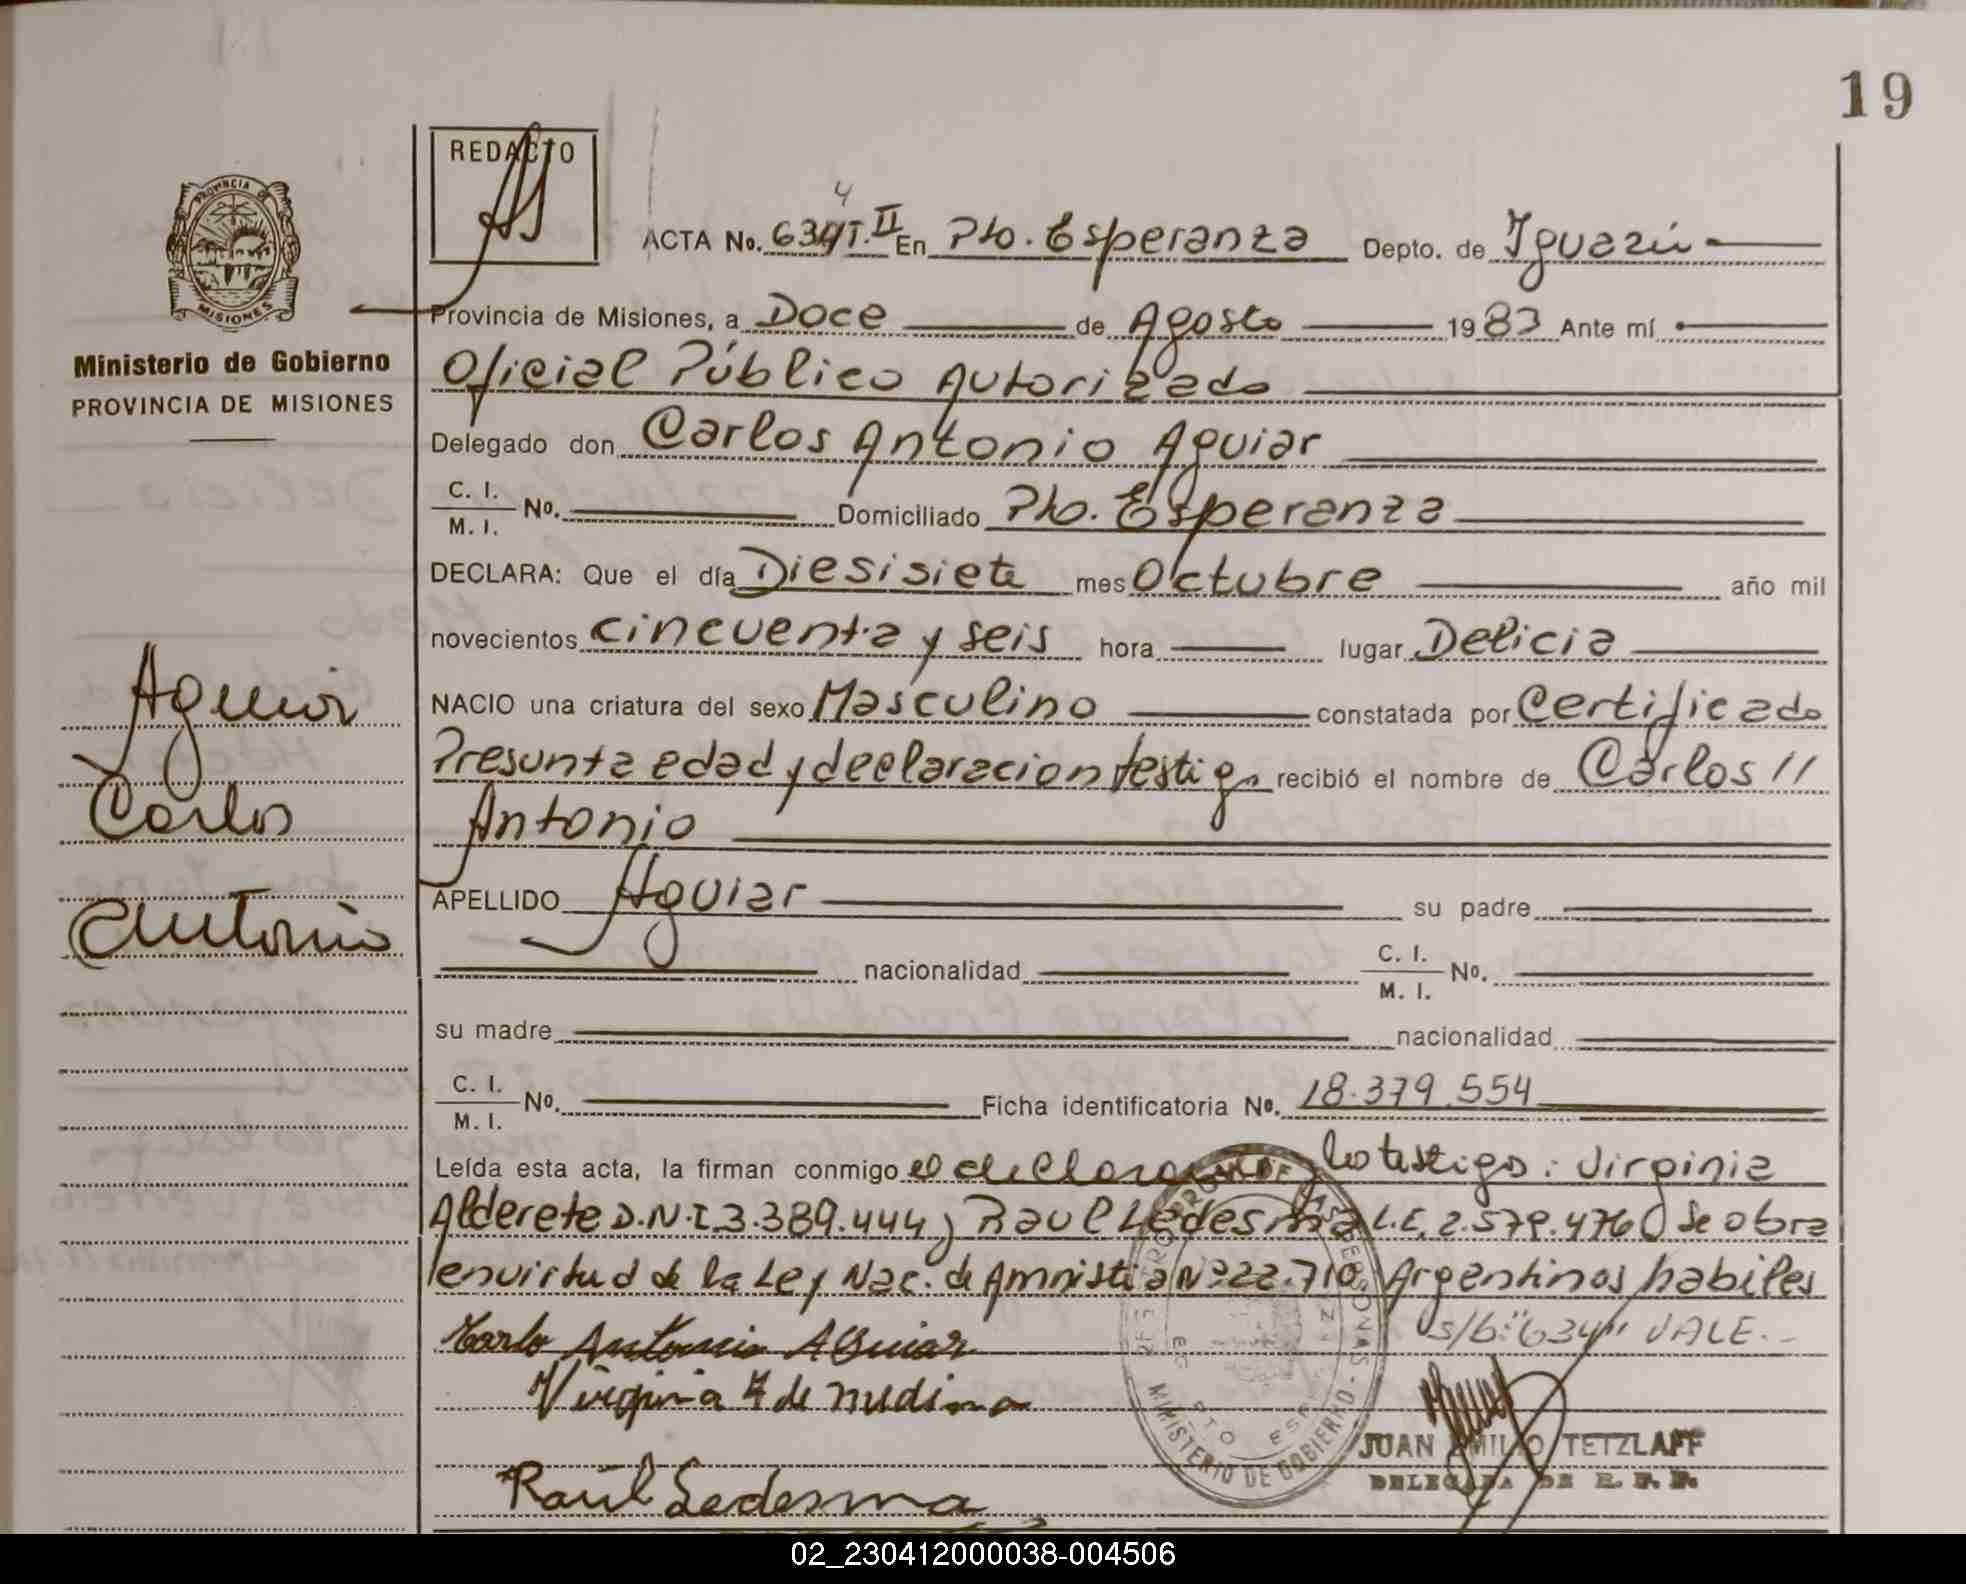 19
REDACTO
4
ACTA No. 634 T. II En Pto. Esperanza Depto. de Iguazú
Provincia de Misiones, a Doce de Agosto 1983 Ante mí
Ministerio de Gobierno
PROVINCIA DE MISIONES
Oficial Público Autorizado
Delegado don Carlos Antonio Aguiar
C. I. M. I. No. Domiciliado Pto. Esperanza
DECLARA: Que el día Diesisiete mes Octubre año mil
novecientos cincuenta y seis hora lugar Delicia
NACIO una criatura del sexo Masculino constatada por Certificado
Presunta edad y declaracion testigo recibió el nombre de Carlos //
Antonio
Aguiar
Carlos
Antonio
APELLIDO Aguiar su padre
nacionalidad C. I. M. I. No.
su madre nacionalidad
C. I. M. I. No. Ficha identificatoria No. 18.379.554
Leída esta acta, la firman conmigo el declarante lo testigo: Virginia
Alderete D.N.I. 3.389.444 y Raul Ledesma L.E. 2.579.476 Se obra
en virtud de la Ley Nac. de Amnistia Nº 22.710 Argentinos habiles
s/b: "634" VALE.-
Carlo Antonio Aguiar
Virginia A de
Raúl Ledesma
MINISTERIO DE GOBIERNO
JUAN EMILIO TETZLAFF
DELEGADA DE R. P. P.
PROVINCIA DE
MISIONES
02_230412000038-004506